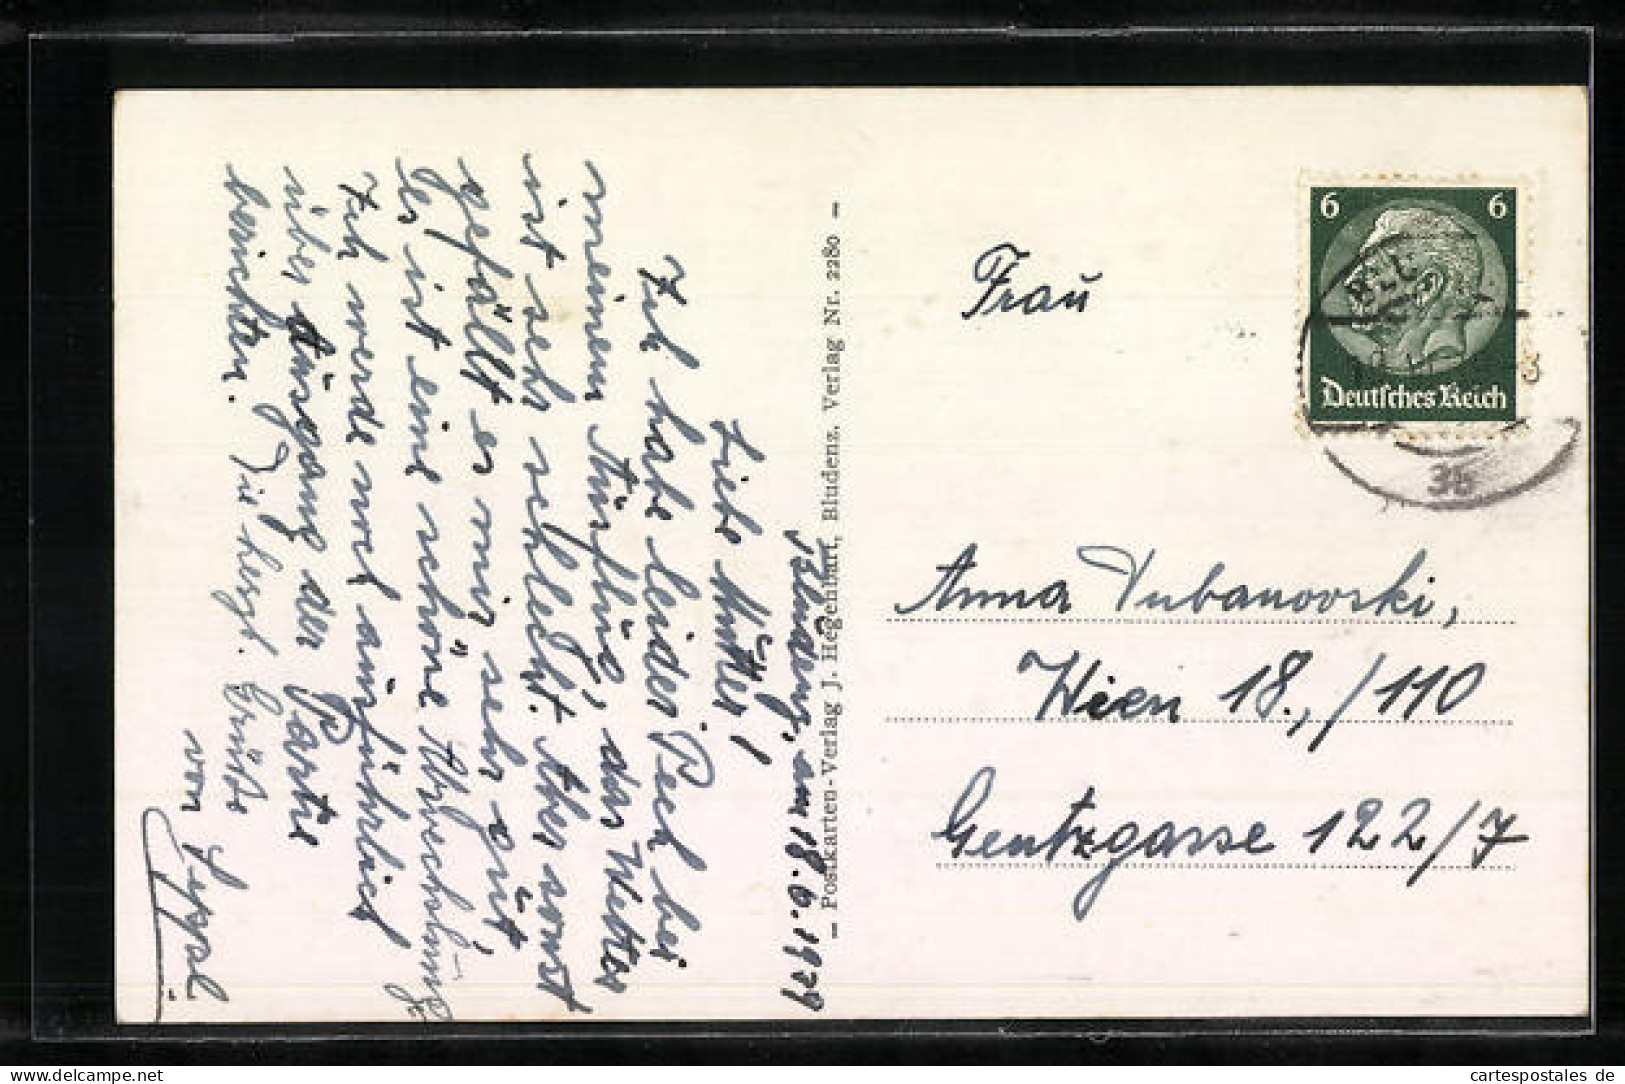 Bludenz, am 18.6.1939
Liebe Mutter!
Ich habe leider Pech bei
meinem Ausflug, das Wetter
ist sehr schlecht. Aber sonst
gefällt es mir sehr gut
Es ist eine schöne Abwechslung
Ich werde noch ausführlich
über Ausgang der Partie
berichten. Die herzl. Grüße
von
— Postkarten-Verlag J. Hegenbart, Bludenz. Verlag Nr. 2280 —
6 6
Deutsches Reich
3b
Frau
Anna Dubanovski,
Wien 18., /110
Gentzgasse 122/7
cartespostales de